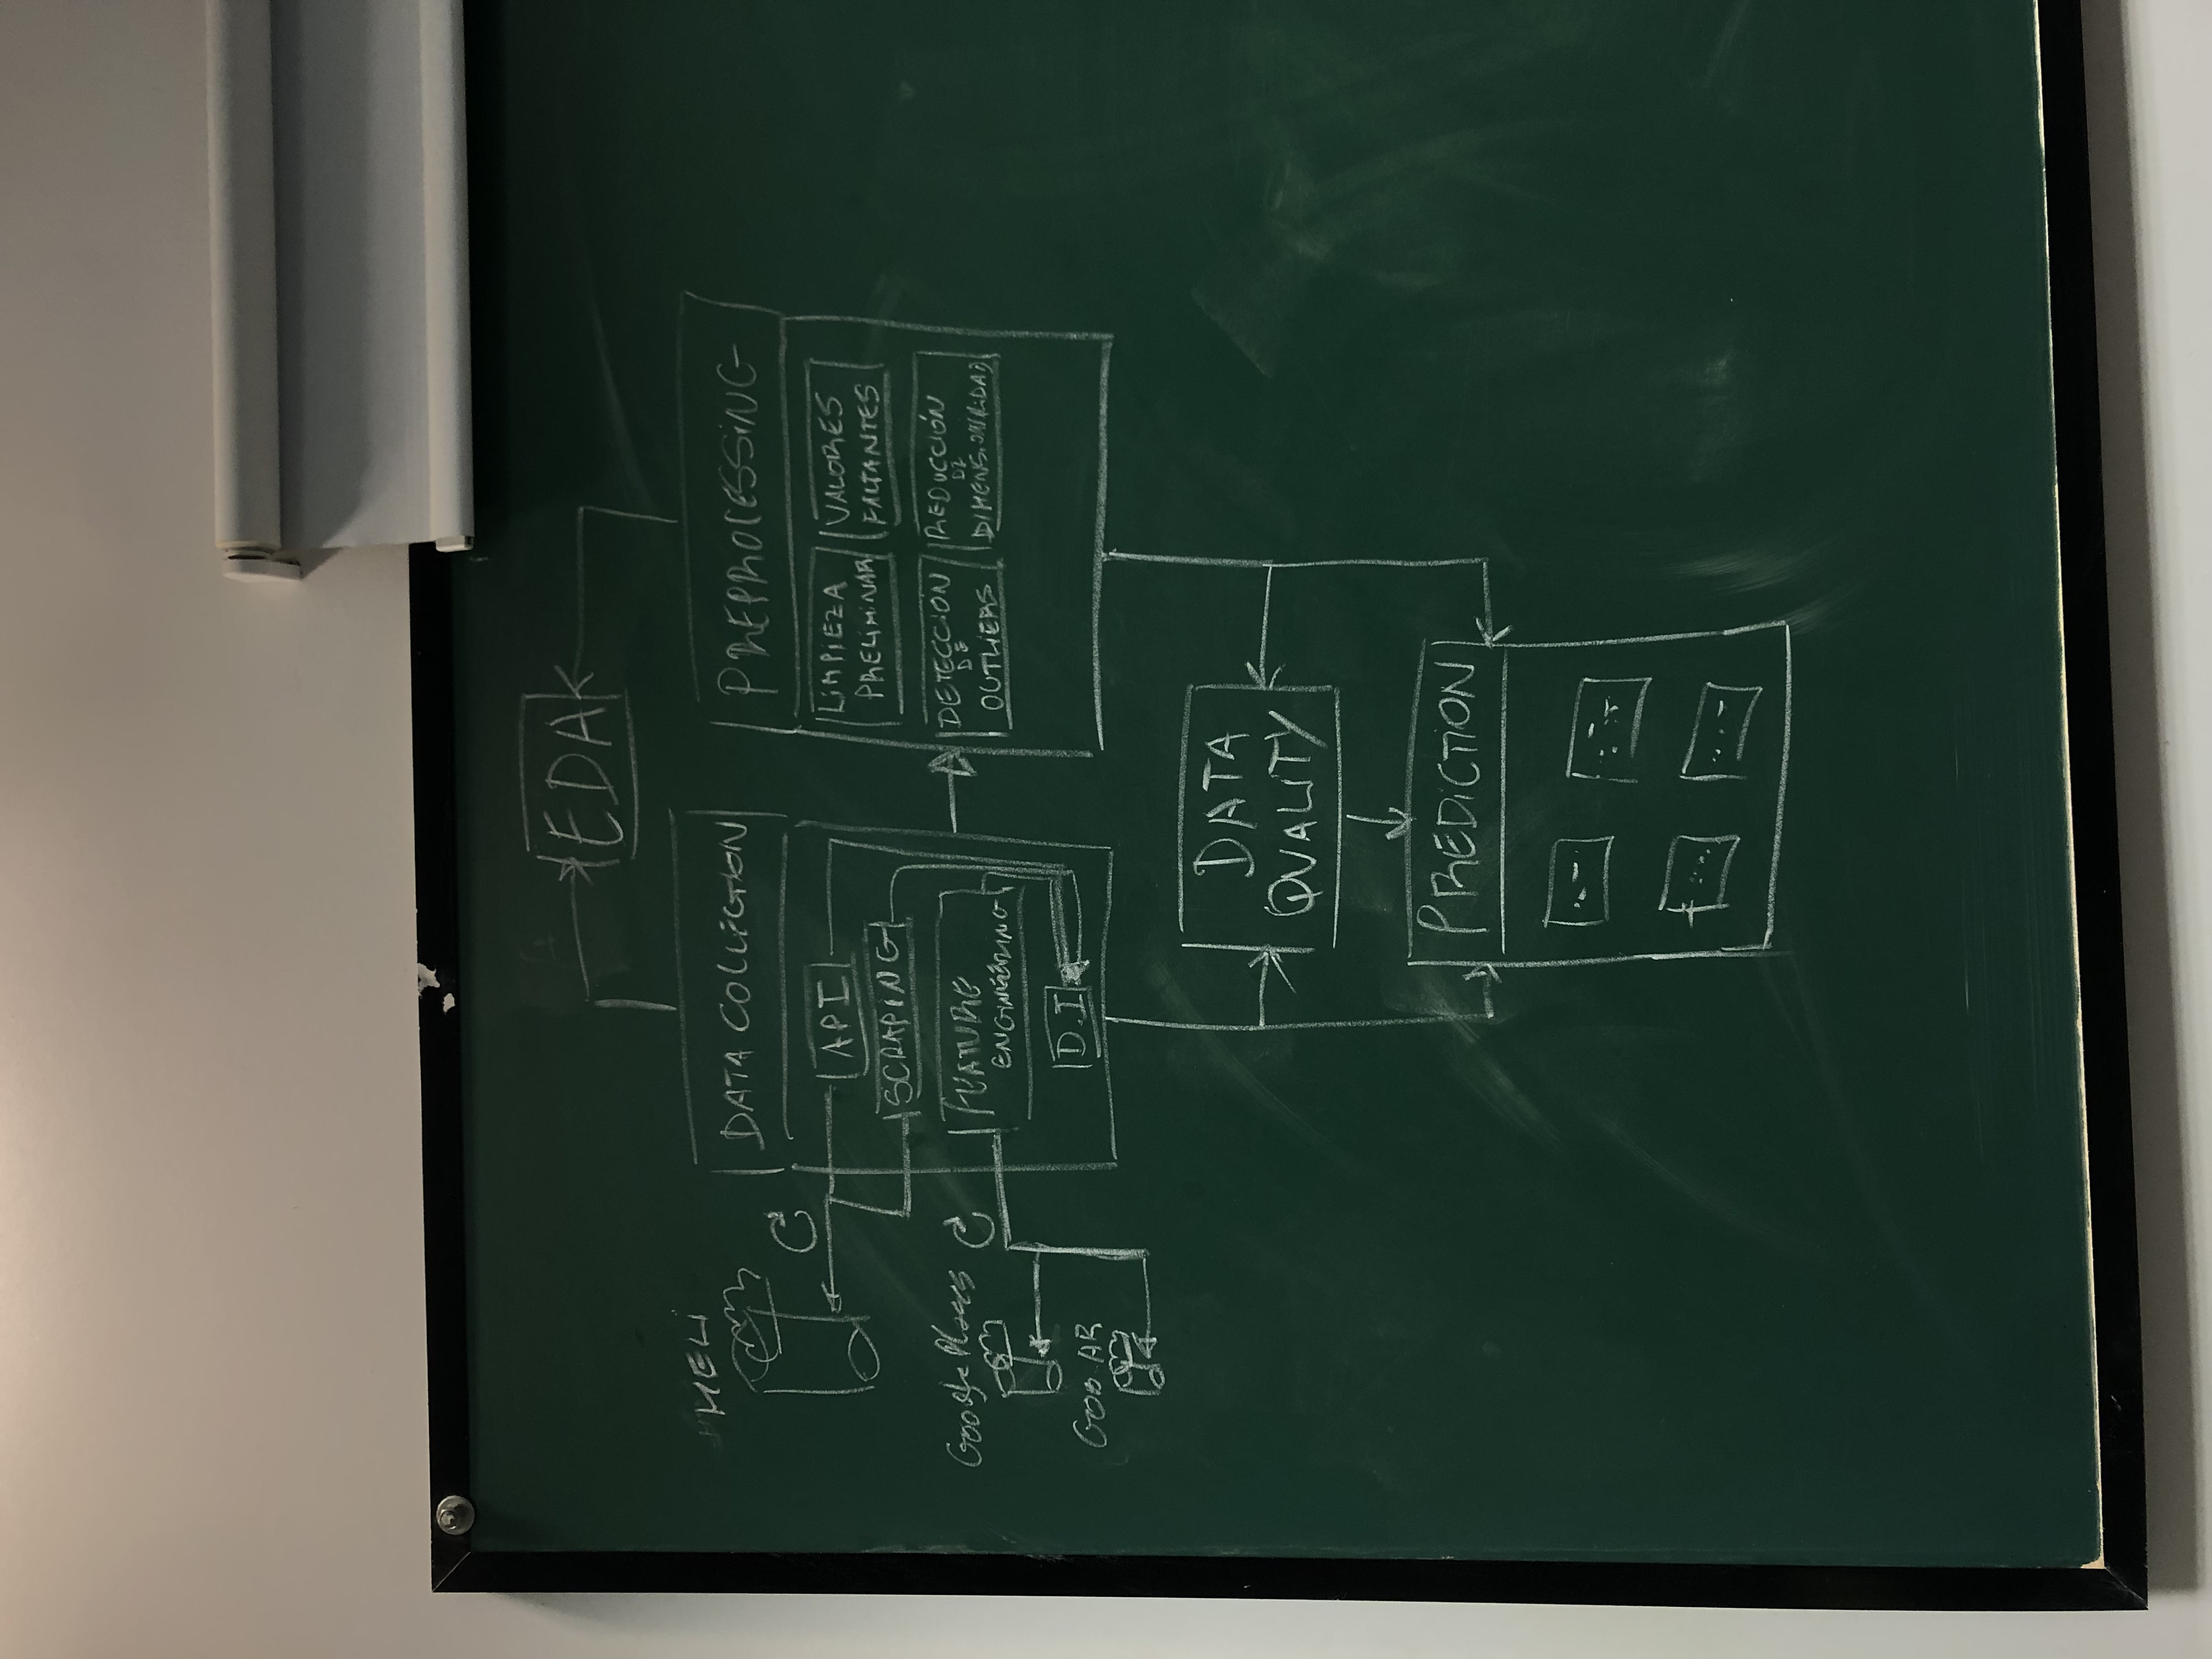 EDA
MELi
DATA COLLECTION
API
SCRAPING
FEATURE
ENGINEERING
D.I
Google Places
GOB AR
PREPROCESSING
LIMPIEZA
PRELIMINAR
VALORES
FALTANTES
DETECCION
DE
OUTLIERS
REDUCCIÓN
DE
DIMENSIONALIDAD
DATA
QUALITY
PREDICTION